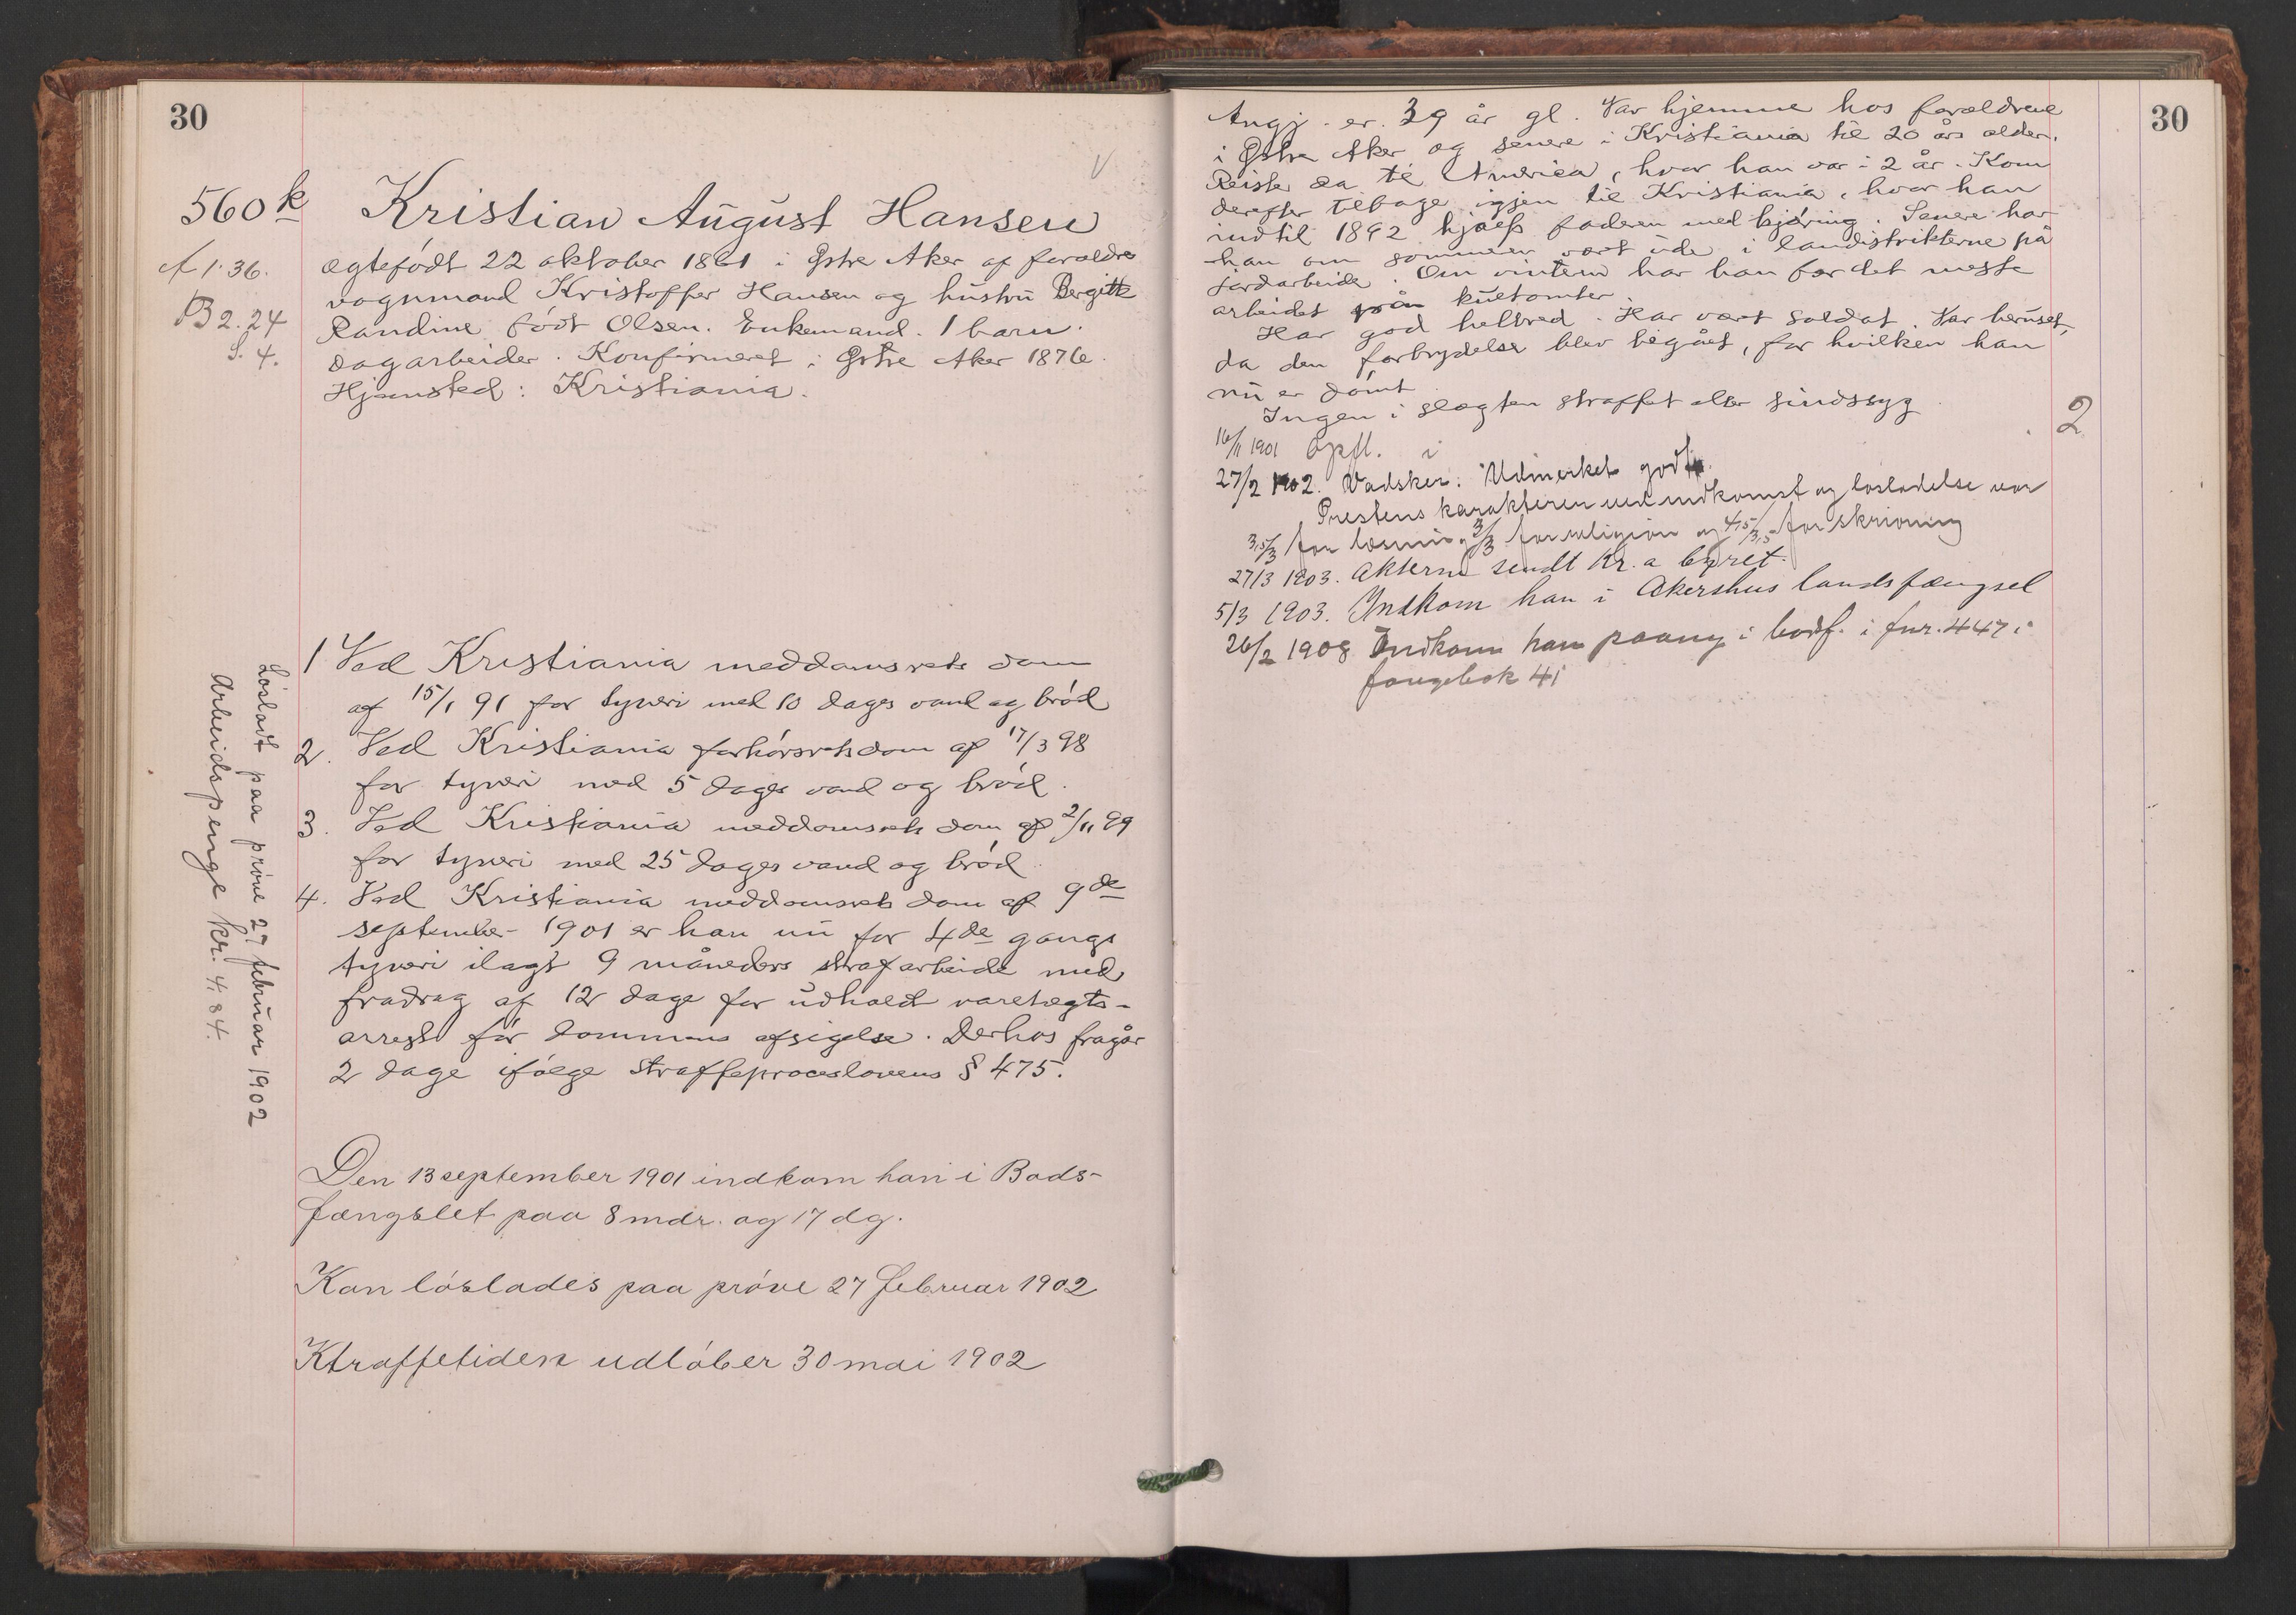 30
560 k
A 1. 36.
B 2. 24
S. 4.
Kristian August Hansen
ægtefødt 22 oktober 1861 i Østre Aker af forældre
vognmand Kristoffer Hansen og hustru Bergitte
Randine født Olsen. Enkemand. 1 barn.
Dagarbeider. Konfirmeret i Østre Aker 1876.
Hjemsted: Kristiania.
1 Ved Kristiania meddomsrets dom
af 15/1 91 for tyveri med 10 dages vand og brød
2. Ved Kristiania forhørsretsdom af 17/3 98
for tyveri med 5 dages vand og brød.
3. Ved Kristiania meddomsrets dom af 2/11 99
for tyveri med 25 dages vand og brød.
4. Ved Kristiania meddomsrets dom af 9de
september 1901 er han nu for 4de gangs
tyveri ilagt 9 måneders strafarbeide med
fradrag af 12 dage for udholdt varetægts-
arrest før dommens afsigelse. Derhos fragår
2 dage ifølge straffeproceslovens § 475.
Løsladt paa prøve 27 februar 1902
Arbeidspenge kr. 4,84.
Den 13 september 1901 indkom han i Bods-
fængslet paa 8 mdr. og 17 dg.
Kan løslades paa prøve 27 februar 1902
Straffetiden udløber 30 mai 1902
30
Angj. er 39 år gl. Var hjemme hos forældrene
i Østre Aker og senere i Kristiania til 20 års alder.
Reiste da til America, hvor han var i 2 år. Kom
derefter tilbage igjen til Kristiania, hvor han
indtil 1892 hjalp faderen med kjøring. Senere har
han om sommeren vært ude i landistrikterne på
jordarbeide. Om vinteren har han for det meste
arbeidet på kultomter.
Har god helbred. Har vært soldat. Var beruset,
da den forbrydelse blev begået, for hvilken han
nu er dømt.
Ingen i slægten straffet eller sindssyg
2
16/11 1901 Opfl. i
27/2 1902. Vadsker: Udmerket godt.
Prestens karakterer ved indkomst og løsladelse var
3,5/3 for læsning, 3/3 for religion og 4,5/3,5 for skrivning
27/3 1903. Akterne sendt Kr.a byret.
5/3 1903. Indkom han i Akershus landsfængsel
26/2 1908 Indkom han paany i bodsf. i fnr. 447 i
fangebok 4i